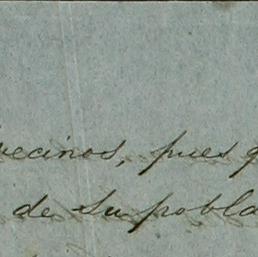 vecinos, pues q
de su pobla